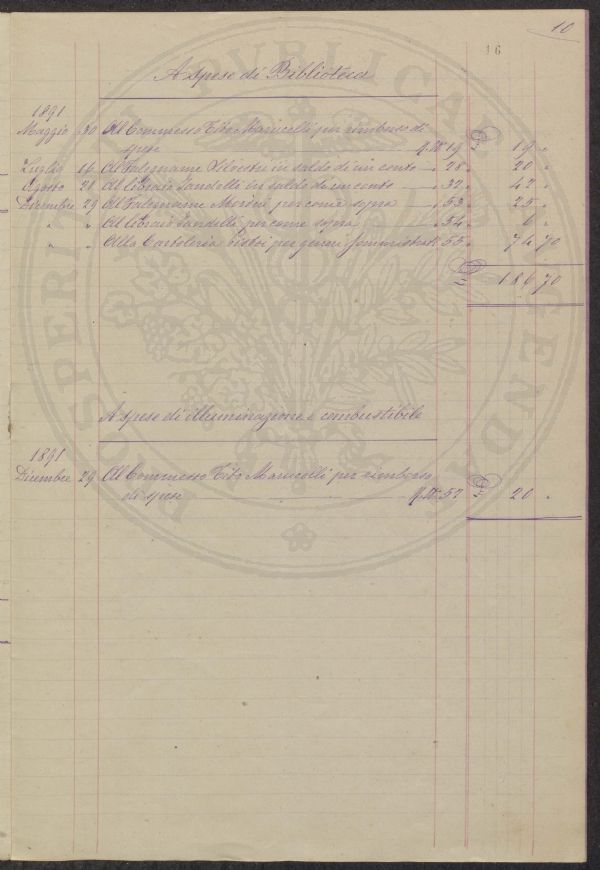 10
16
A spese di Biblioteca
1891
Maggio 30 Al Commesso Tito Marucelli per rimborso di
spese q. N° 19 £ 19 "
Luglio 16 Al Falegname Silvestri in saldo di un conto " 28 " 20 "
Agosto 28 Al libraio Pandelli in saldo di un conto " 32 " 42 "
Dicembre 29 Al Falegname per come sopra " 53 " 25 "
" " Al libraio Pandelli per come sopra " 54 " 6 "
" " Alla Cartoleria Pistoj per generi somministrati " 55 " 74 70
£ 186 70
A spese di illuminazione e combustibile
1891
Dicembre 29 Al Commesso Tito Marucelli per rimborso
di spese q. N° 57 £ 20 "
PROSPERITATI PUBLICAE AUGENDAE